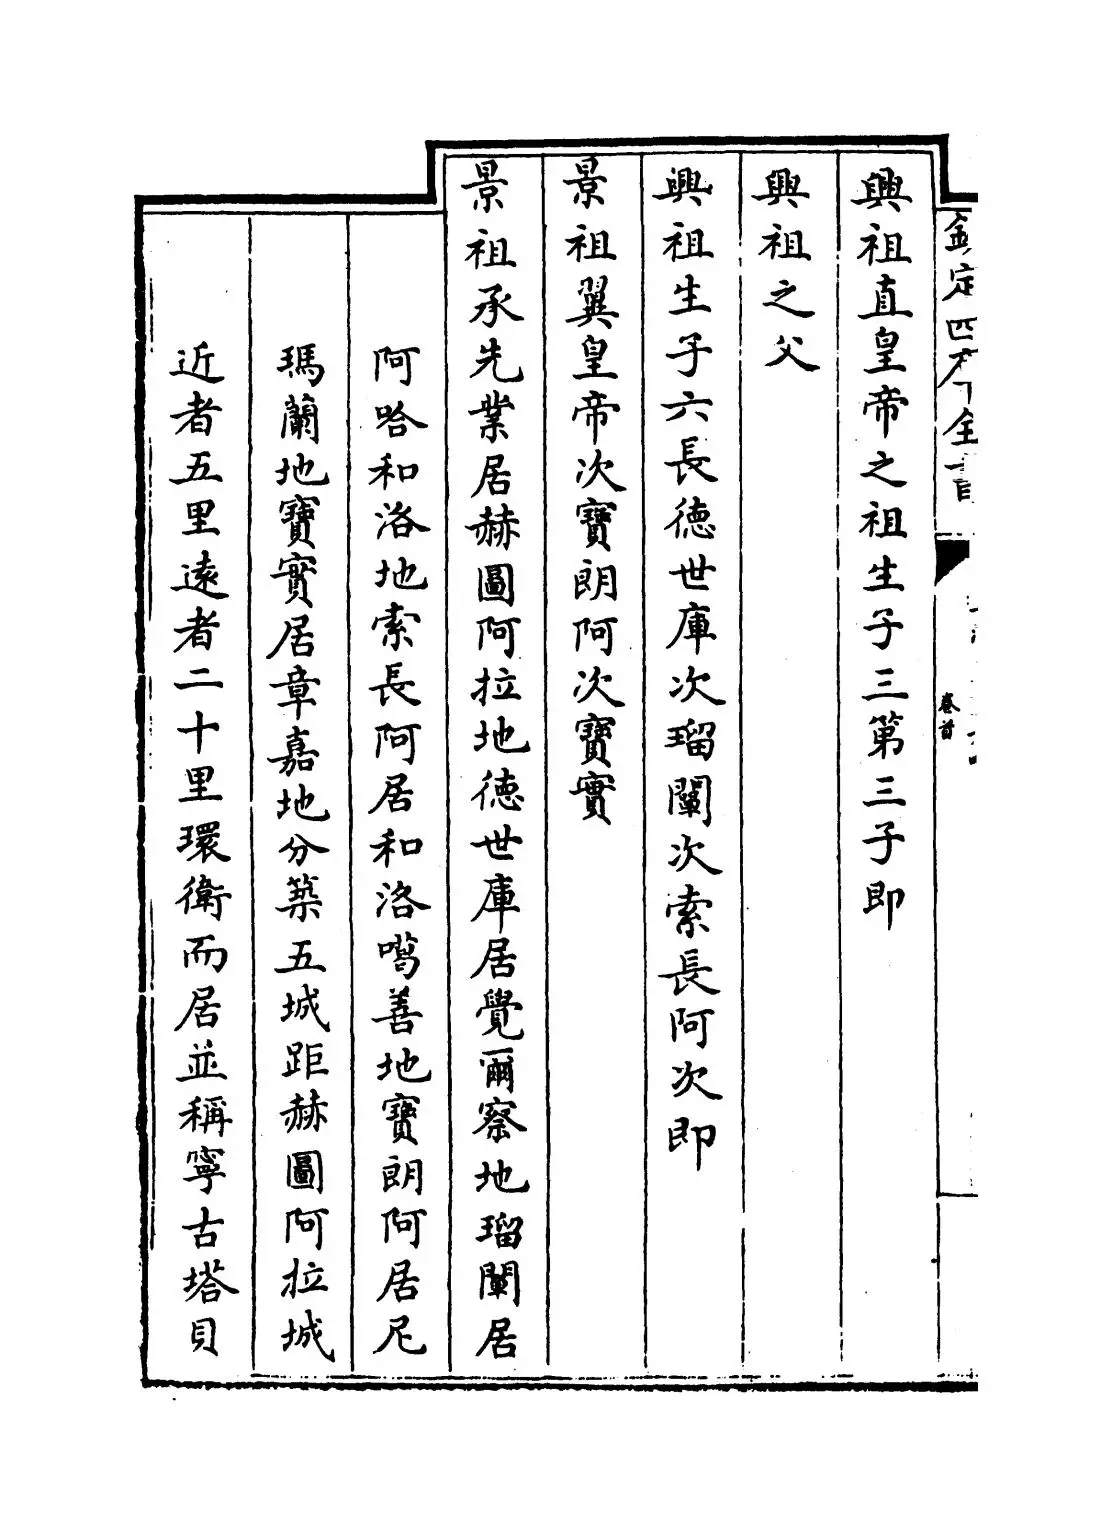 欽定四庫全書
卷首
興祖直皇帝之祖生子三第三子即
興祖之父
興祖生子六長德世庫次瑠闡次索長阿次即
景祖翼皇帝次寶朗阿次寶實
景祖承先業居赫圖阿拉地德世庫居覺爾察地瑠闡居
阿哈和洛地索長阿居和洛噶善地寶朗阿居尼
瑪蘭地寶實居章嘉地分築五城距赫圖阿拉城
近者五里遠者二十里環衛而居並稱寧古塔貝